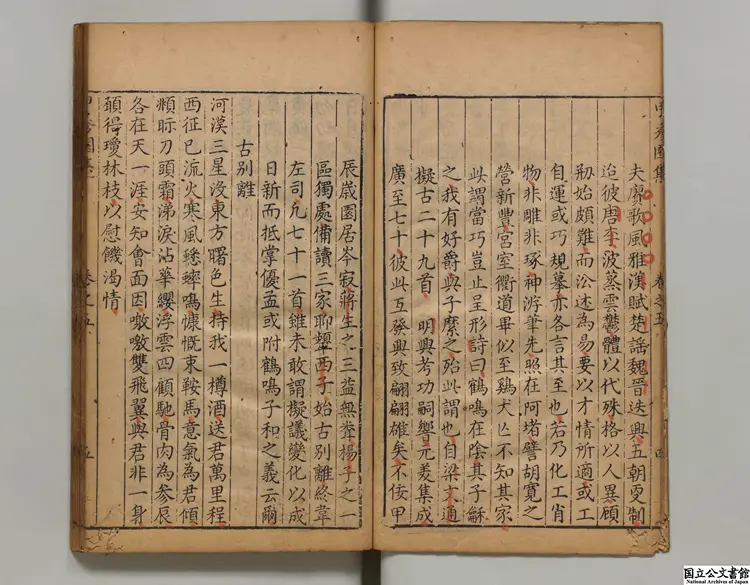 夫賡歌風雅漢賦楚謠魏晉迭興五朝更制
迨彼唐李波蒸雲鬱體以代殊格以人異顧
剏始頗難而沿述為易要以才情所適或工
自運或巧規摹亦各言其至也若乃化工肖
物非雕非琢神游筆先照在阿堵譬胡寬之
營新豐宮室衢道畢似至鷄犬亾不知其家
此謂當巧豈止呈形詩曰鶴鳴在陰其子龢
之我有好爵與子縻之殆此謂也自梁文通
擬古二十九首 明興考功嗣響元美集成
廣至七十彼此互發興致翩翩雄矣不佞甲
卷之五
四
辰歲園居岑寂蔣生之三益無聋楊子之一
區獨處備讀三家聊顰西子始古別離終韋
左司凢七十一首雖未敢謂擬議變化以成
日新而抵掌優孟或附鶴鳴子和之義云爾
古別離
河漢三星沒東方曙色生持我一樽酒送君萬里程
西征已流火寒風蟋蟀鳴慷慨束鞍馬意氣為君傾
頫眎刀頭霜涕淚沾華纓浮雲四顧馳骨肉為參辰
各在天一涯安知會面因噭噭雙飛翼與君非一身
願得瓊林枝以慰饑渴情
卷之五
五
国立公文書館
National Archives of Japan